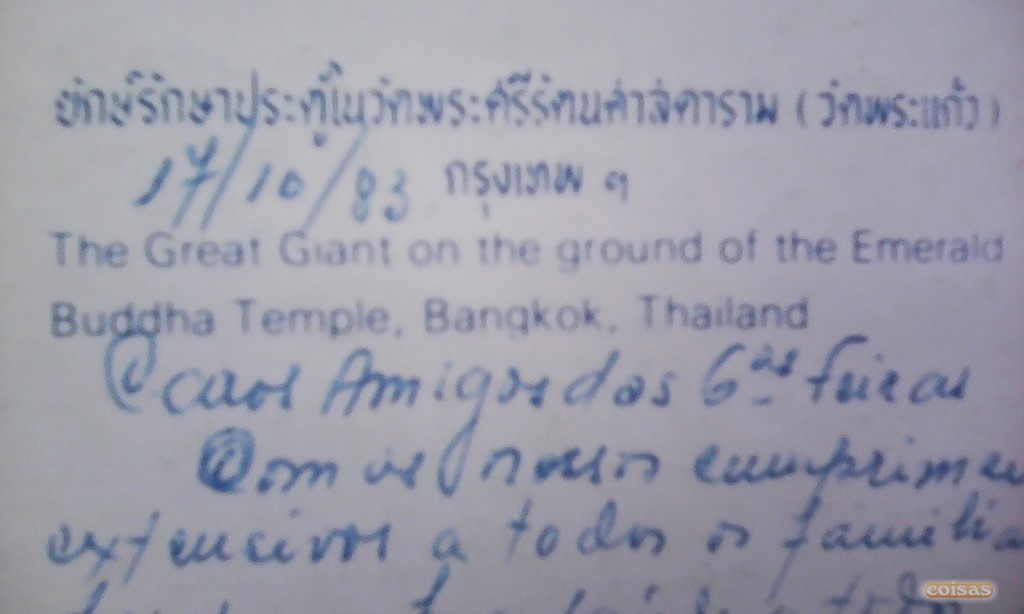 ยักษ์รักษาประตูในวัดพระศรีรัตนศาสดาราม (วัดพระแก้ว)
17/10/83 กรุงเทพ ฯ
The Great Giant on the ground of the Emerald
Buddha Temple, Bangkok, Thailand
Caros Amigos das 6as feiras
Com os nossos cumprimen
extensivos a todos os familia
coisas